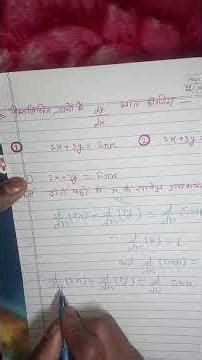 निम्नलिखित फलनों में dy/dx ज्ञात कीजिए —
① 2x + 3y = sinx ② 2x + 3y =
① 2x + 3y = sinx
दोनों पक्षों में x के सापेक्ष
d/dx (2x) + d/dx (3y) = d/dx (sinx)
d/dx (x) = 1
d/dx (sinx) =
d/dx (2x) + d/dx (3y) = d/dx sinx